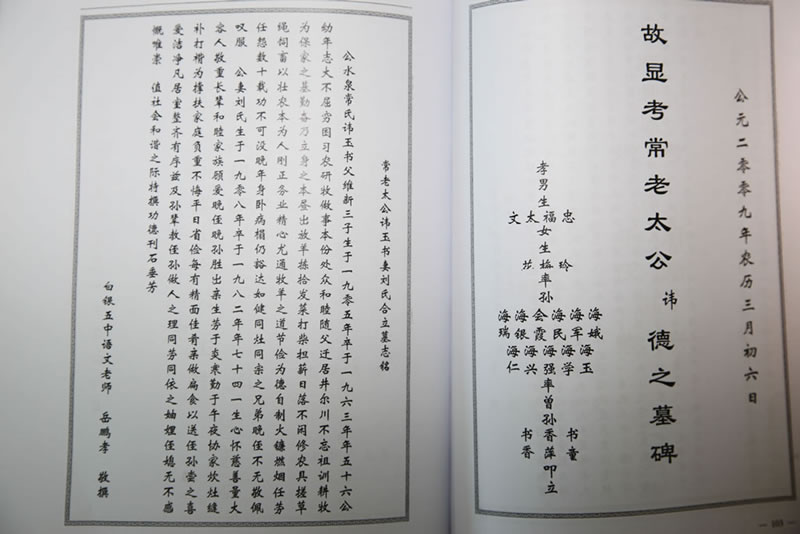 常老太公讳玉书妻刘氏合立墓志铭
公水泉常氏讳玉书父维新三子生于一九零五年卒于一九六三年年五十六公
幼年志大不屈穷困习农研牧做事本份处众和睦随父迁居井尔川不忘祖训耕牧
为保家之基勤奋乃立身之本出放羊拣拾发菜打柴担薪日落不闲修农具搓草
绳饲畜以壮农本为人刚正务业精心尤通牧羊之道节俭为德自制火镰燃烟任劳
任怨数十载功不可没晚年身卧病榻仍豁达如健同灶同宗之兄弟晚侄不无敬佩
叹服 公妻刘氏生于一九零八年卒于一九八二年年七十四一生心怀慈善量大
容人敬重长辈和睦家族爱晚侄晚孙胜出亲生劳于炎寒勤于午夜协家炊灶缝
补打楷为撑扶家庭负重不悔平日省俭每有精面佳肴亲做扁食以送侄孙尝之喜
爱洁净凡居室整齐有序兹及孙辈教侄孙做人之理同劳同依之妯娌侄媳无不感
慨唯崇 值社会和谐之际特撰功德刊石垂芳
白银五中语文老师 岳鹏孝 敬撰
公元二零零九年农历三月初六日
故显考常老太公讳德之墓碑
孝男生
忠福太文
女生
玲梅
率孙
海娥
海军
海民
会霞
海银
海瑞
海玉
海学
海强
海兴
海仁
率曾孙
书童
香萍
书香
叩立
169